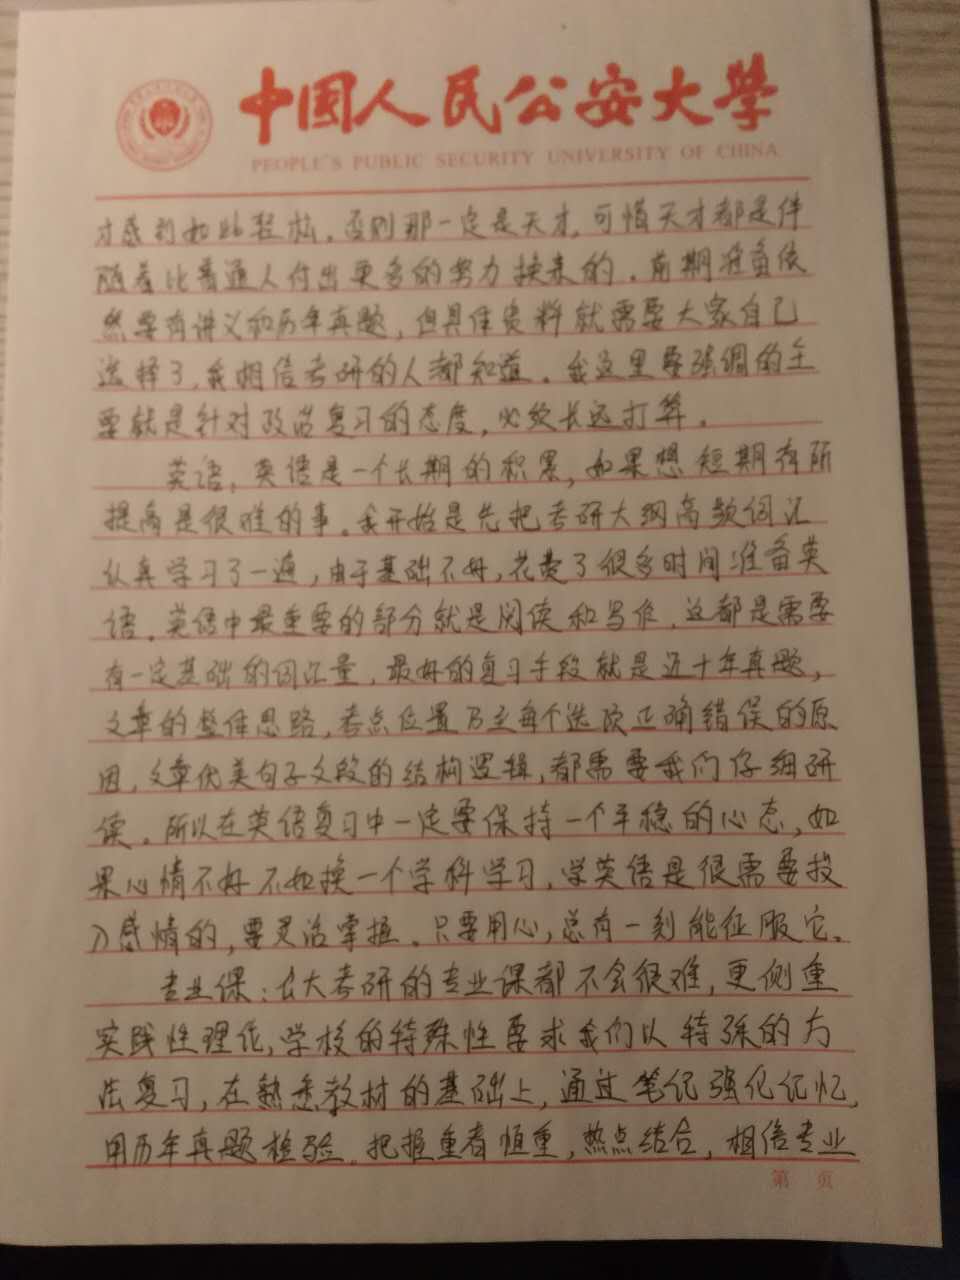 中国人民公安大學
PEOPLE'S PUBLIC SECURITY UNIVERSITY OF CHINA
才感到如此轻松。否则那一定是天才,可惜天才都是伴
随着比普通人付出更多的努力换来的。前期准备依
然要有讲义和历年真题,但具体资料就需要大家自己
选择了,我相信考研的人都知道。我这里要强调的主
要就是针对政治复习的态度,必须长远打算。
英语,英语是一个长期的积累,如果想短期有所
提高是很难的事。我开始是先把考研大纲高频词汇
认真学习了一遍,由于基础不好,花费了很多时间准备英
语。英语中最重要的部分就是阅读和写作,这都是需要
有一定基础的词汇量,最好的复习手段就是近十年真题,
文章的整体思路,考点位置乃至每个选项正确错误的原
因,文章优美句子文段的结构逻辑,都需要我们仔细研
读。所以在英语复习中一定要保持一个平稳的心态,如
果心情不好不如换一个学科学习,学英语是很需要投
入感情的,要灵活掌握。只要用心,总有一刻能征服它。
专业课:公大考研的专业课都不会很难,更侧重
实践性理论,学校的特殊性要求我们以特殊的方
法复习,在熟悉教材的基础上,通过笔记强化记忆,
用历年真题检验。把握重者恒重,热点结合,相信专业
第 页